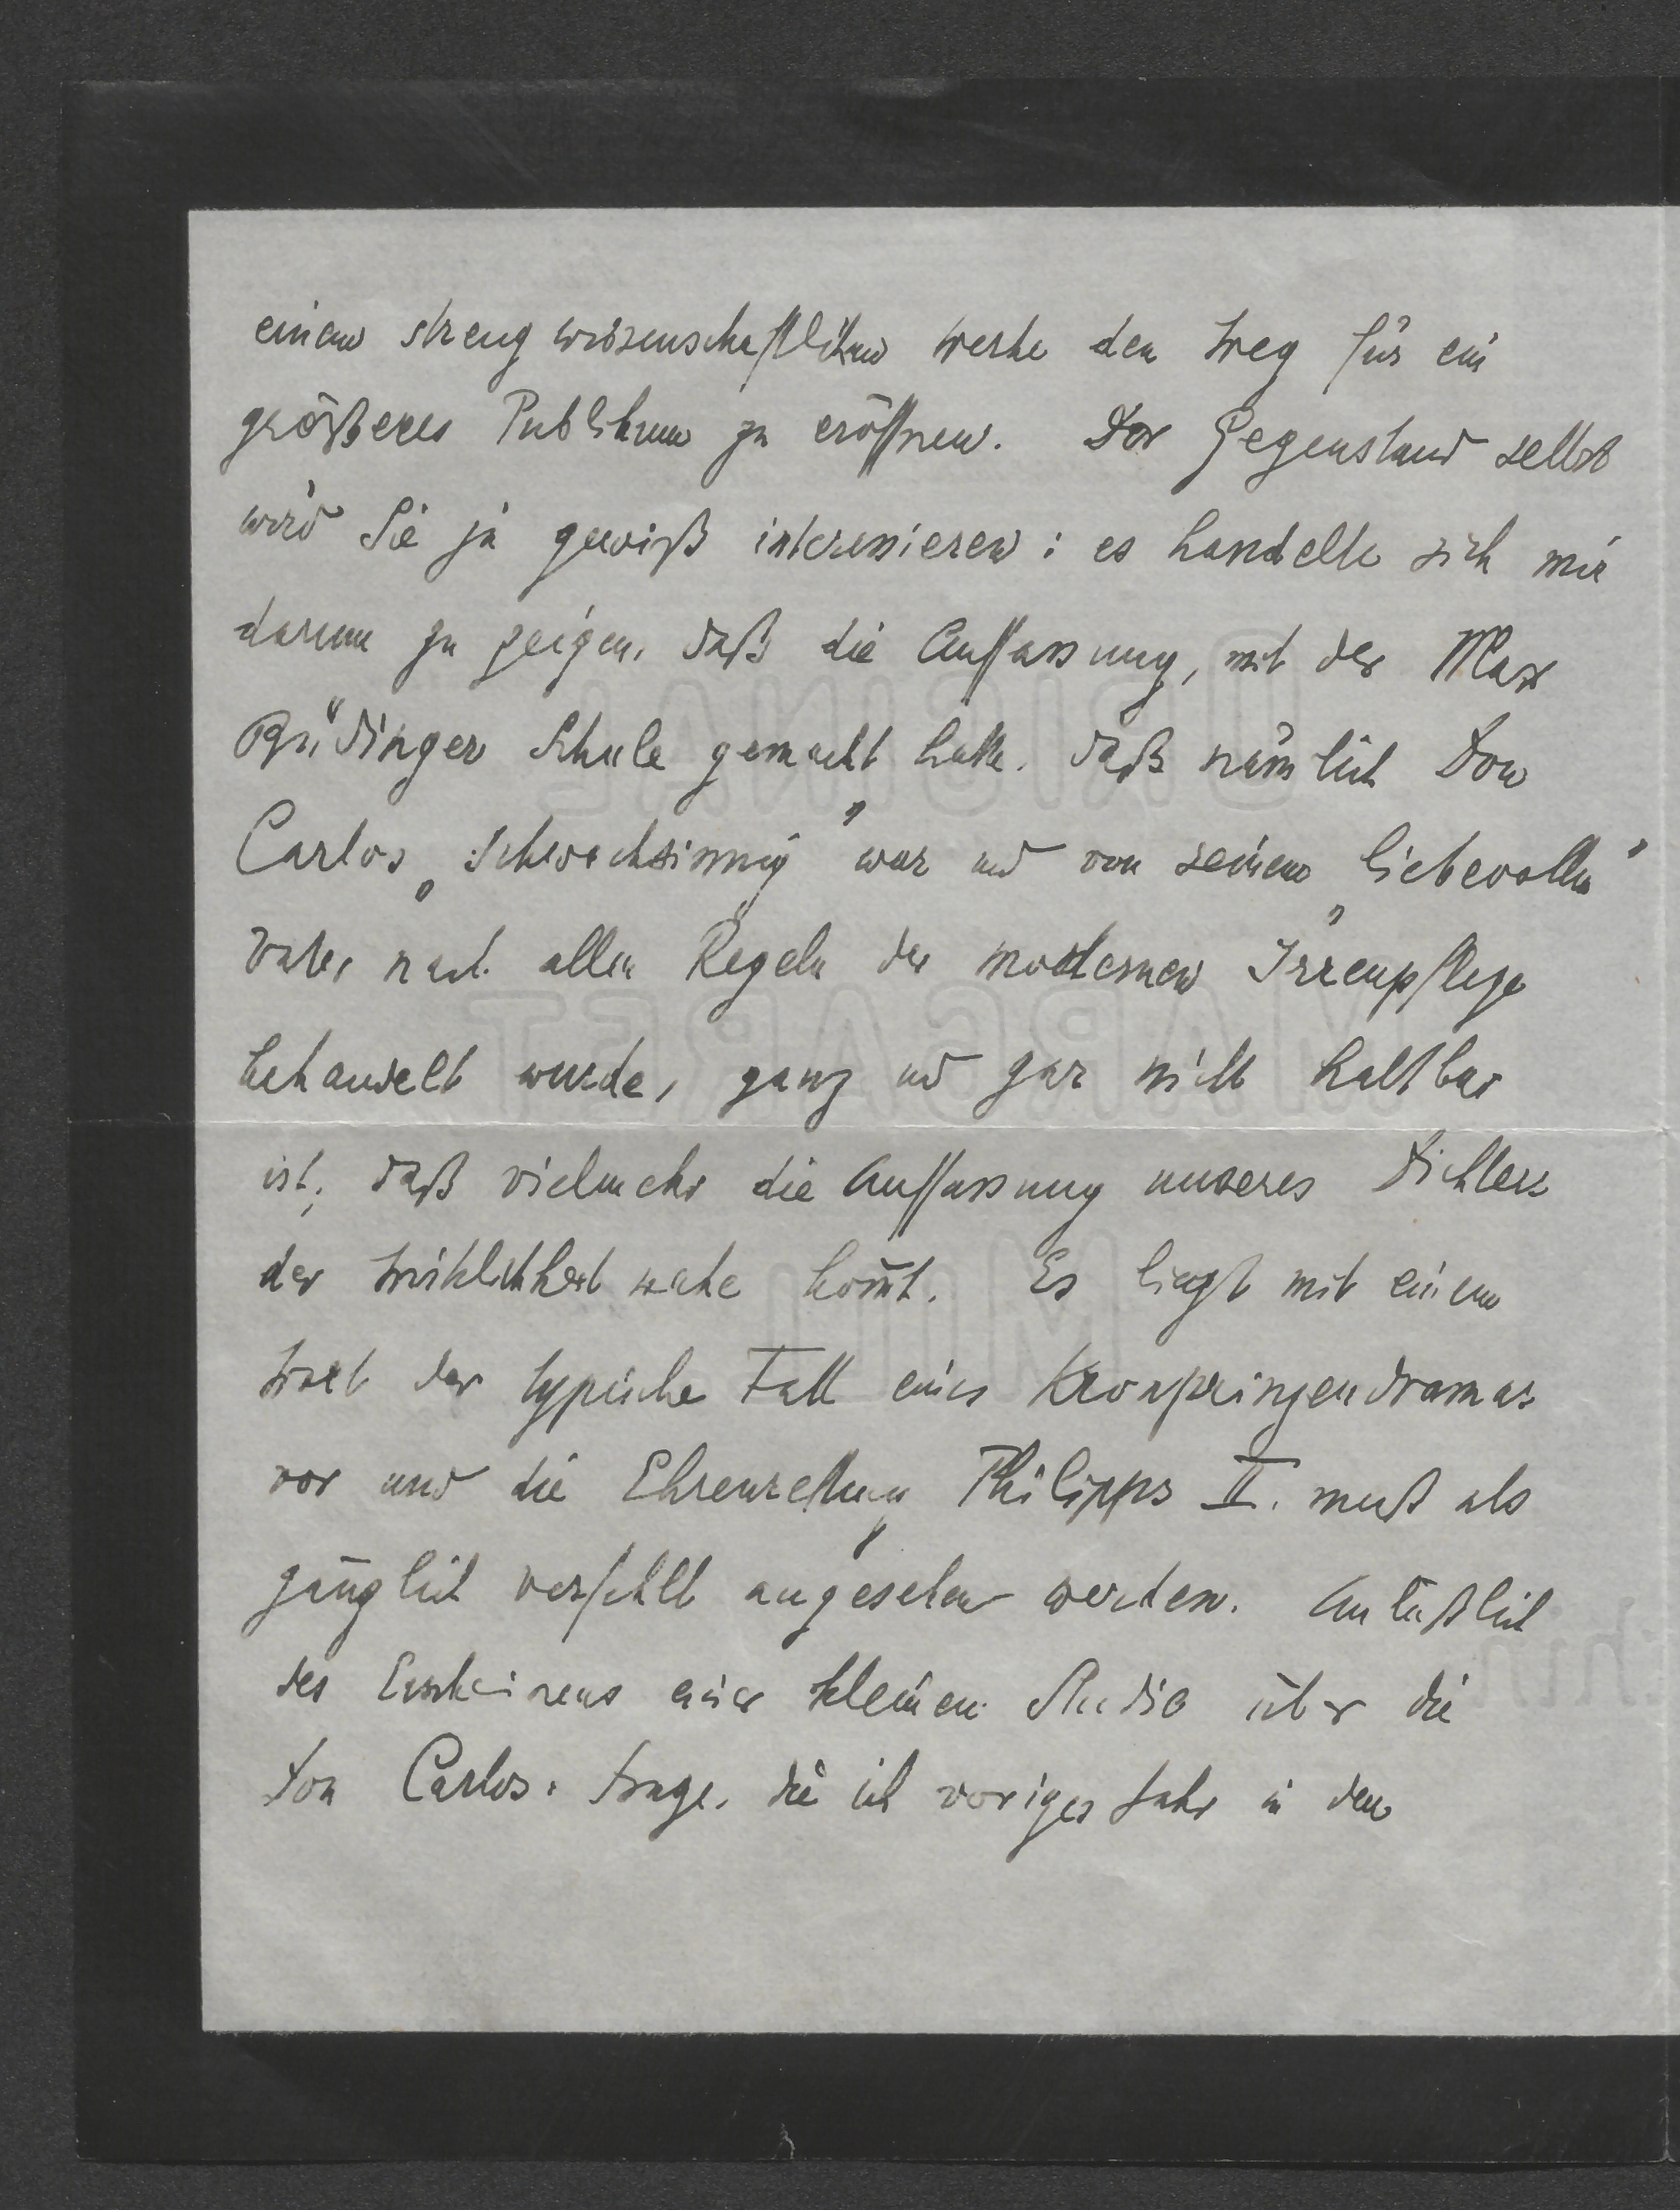 einem streng wissenschaftlichen Werke den Weg für ein
größeres Publikum zu eröffnen. Der Gegenstand selbst
wird Sie ja gewiß interessieren: es handelte sich mir
darum zu zeigen, daß die Auffassung, mit der Max
Büdinger Schule gemacht hatte, daß nämlich Don
Carlos „schwachsinnig“ war und von seinem „liebevollen“
Vater nach allen Regeln der modernen Irrenpflege
behandelt wurde, ganz und gar nicht haltbar
ist, daß vielmehr die Auffassung unseres Dichters
der Wirklichkeit nahe kom̄t. Es liegt mit einem
Wort der typische Fall eines Kronprinzendramas
vor und die „Ehrenrettung“ Philipps II. muß als
gänzlich verfehlt angesehen werden. Anläßlich
des Erscheinens einer kleinen Studie über die
Don Carlos-Frage, die ich voriges Jahr in den
ORIGINAL
MARGARET
MILL